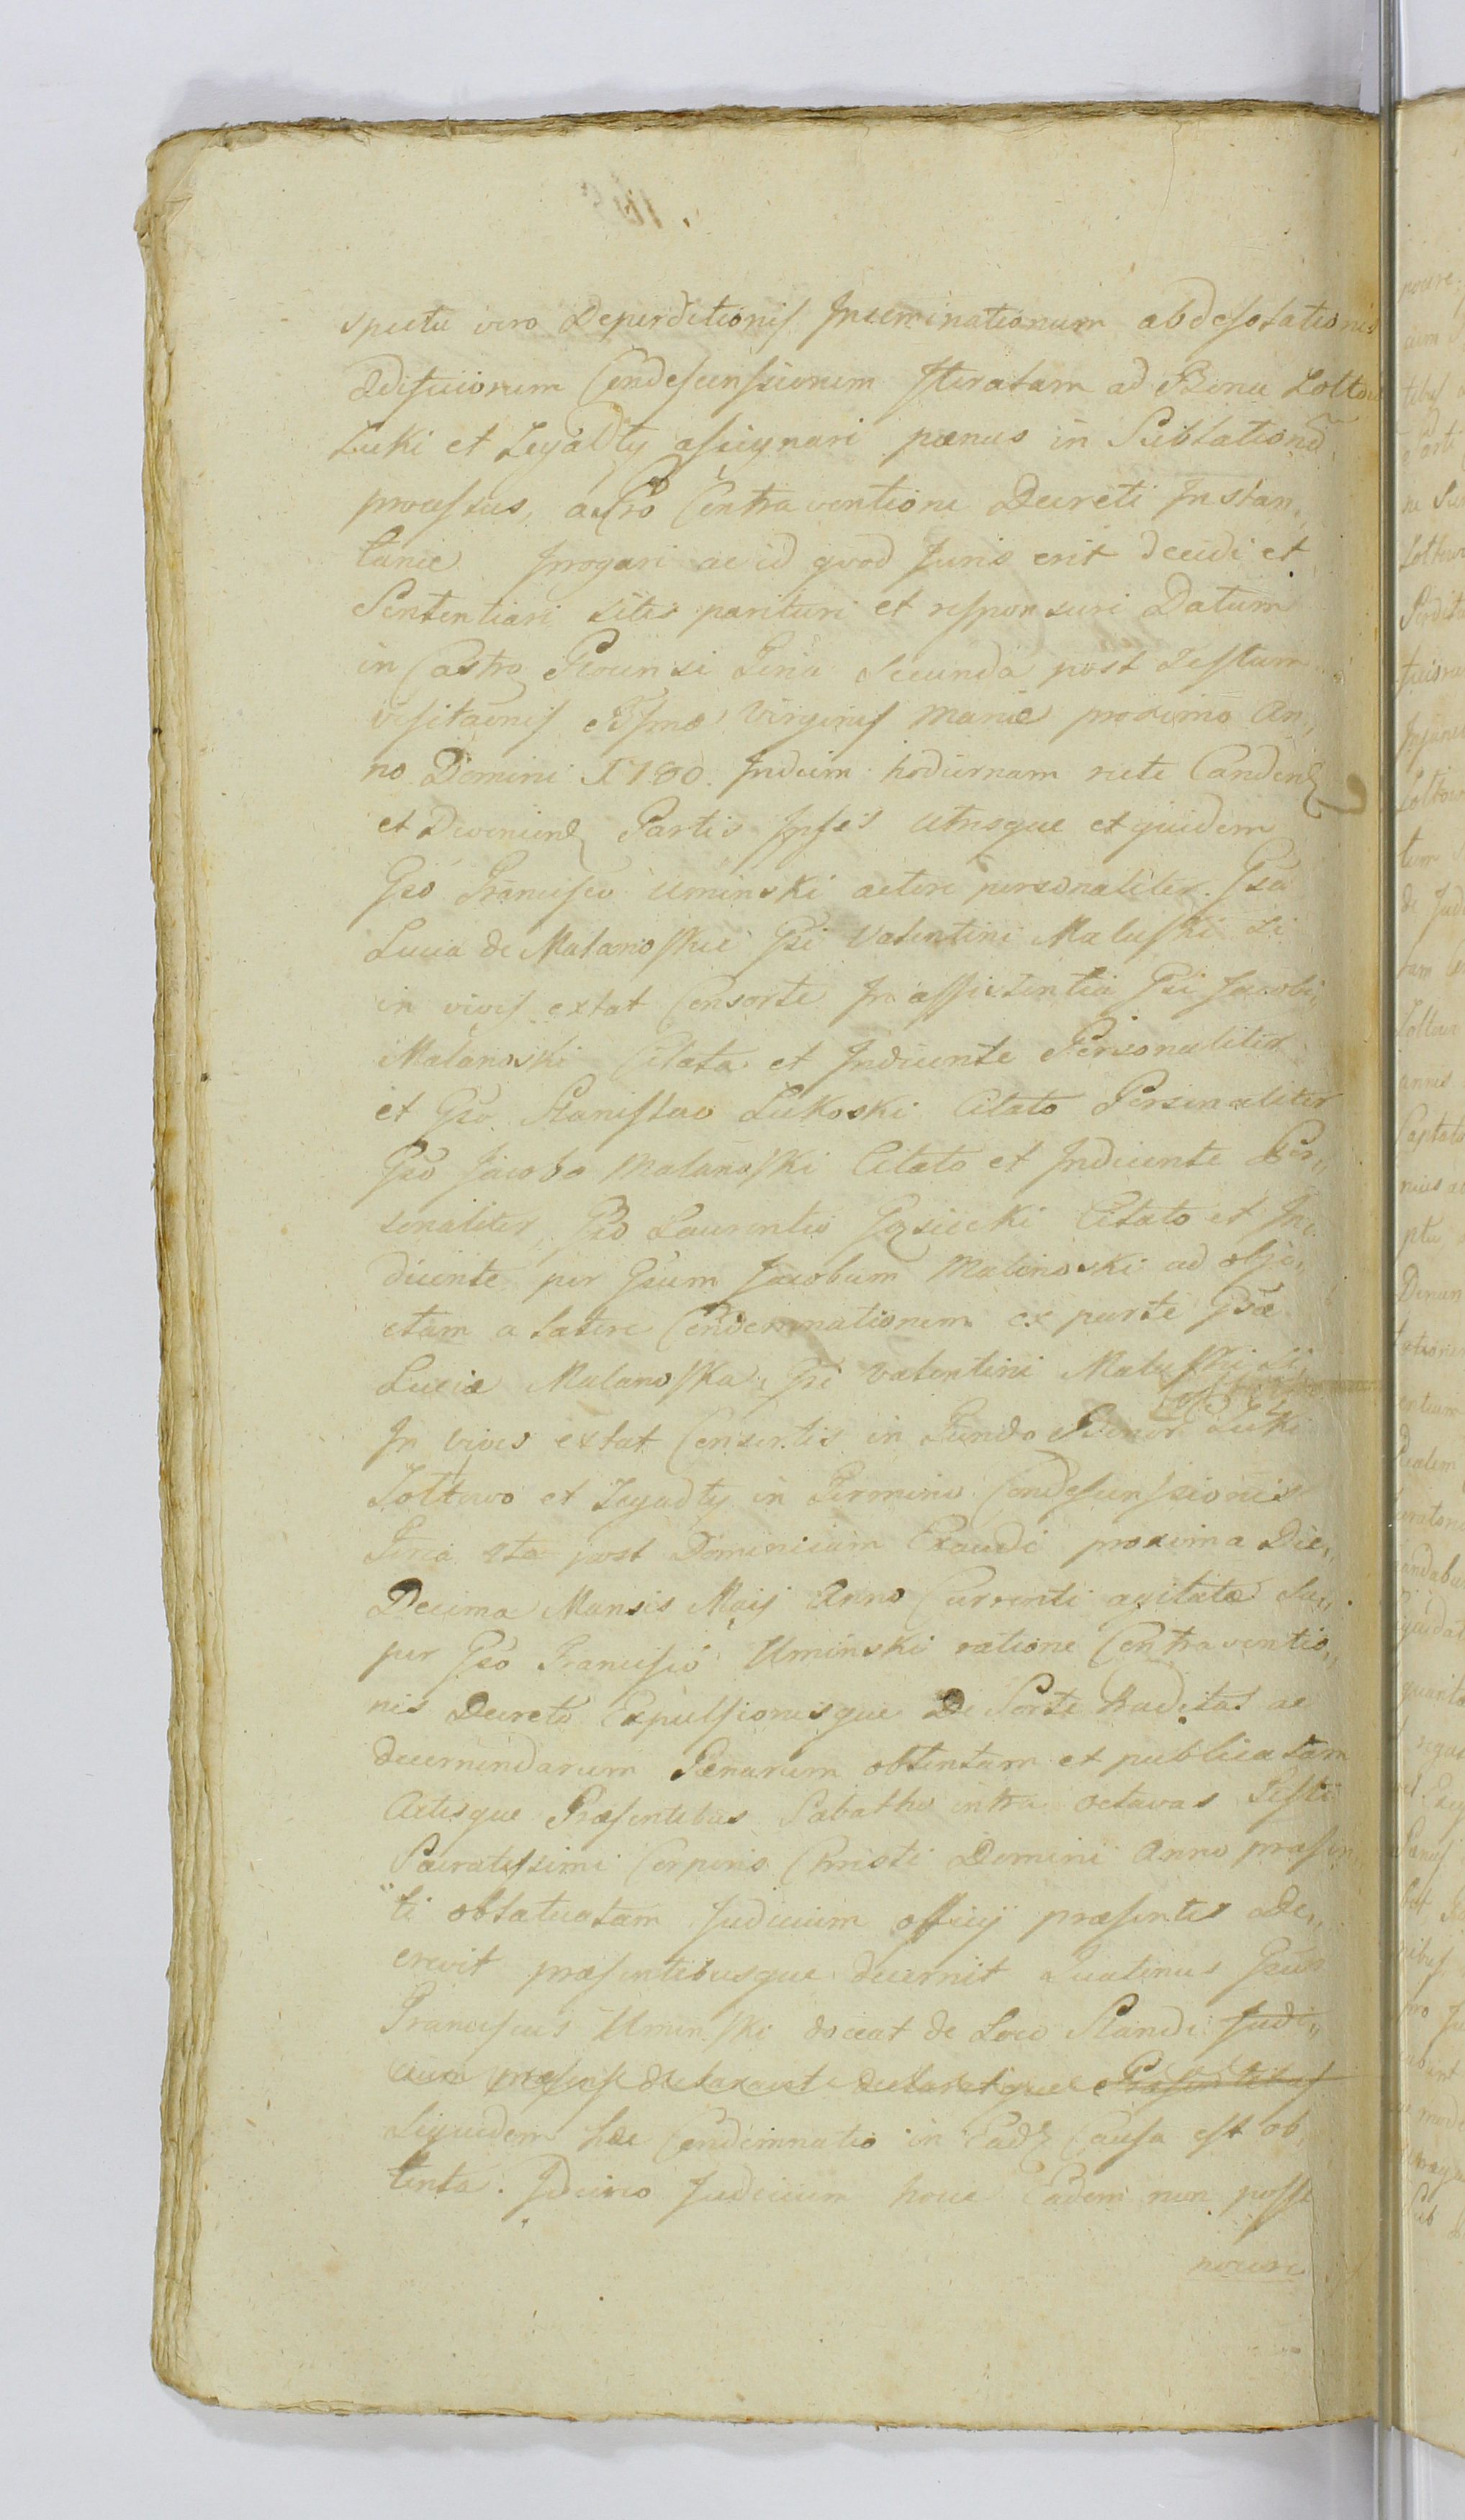 spectu vero Deperditionis Inseminationum ab desolationis
Ædificiorum Condescensionem Iteratam ad Bona Zolto
Łuki et Zegadty assignari pænas in Sublationē
processus, ac pro Contraventione Decreti Instan„
taneæ Irrogari ac id quod Juris erit decidi et
Sententiari sitis parituri et responsuri Datum
in Castro Plocensi Feria Secunda post Festum
visitaōnis Bssmæ Virginis Mariæ proximo An„
no Domini 1780. Indeim hodiernam rite Candenē
et Devenienē Partis Ipsis Utrisque et quidem
Gso Francisco Uminski actore personaliter. Gsa
Lucia de Malanoskie Gsi Valentini Maluski Si
in vivis extat Consorte In assistentia Gsi Jacobi
Malanoski Citata et Inducente Personaliter
et Gso Stanislao Lukoski Citato Personaliter
Gso Jacobo Malanoski Citato et Inducente Per„
sonaliter, Gso Laurentio Gąsiecki Citato et In„
ducente per Gsum Jacobum Malinoski ad obje„
ctam a latere Condemnationem ex parte Gsæ
Luciæ Malanoska, Gsi Valentini Maluski Si
In vivis extat Consortis in Fundo Bonor Łuki
Zoltowo et Zegadty in Termino Condescensionis
Feria 4ta post Dominicam Exaudi proxima Die„
Decima Mensis Maij Anno Currenti agitatæ Su„
per Gso Francisco Uminski ratione Contraventio„
nis Decreto Expulsionisque De Sorte tradita ac
decernendarum Pænarum obtentam et publicatam
Actisque Præsentibus Sabatho intra octavas Festi
Sacratissimi Corporis Christi Domini Anno præsen
ti oblatuatam Judicium officij præsentis De„
crevit præsentibusque decernit Quatinus Gsus
Franciscus Uminski doceat de Loco Standi Judi„
cium præsens declaravit declaratque Præsentibus
Siquidem hæc Condemnatio in Eadē Causa est ob„
tenta. Idcirco Judicium hocce Eadem non posse
nocere